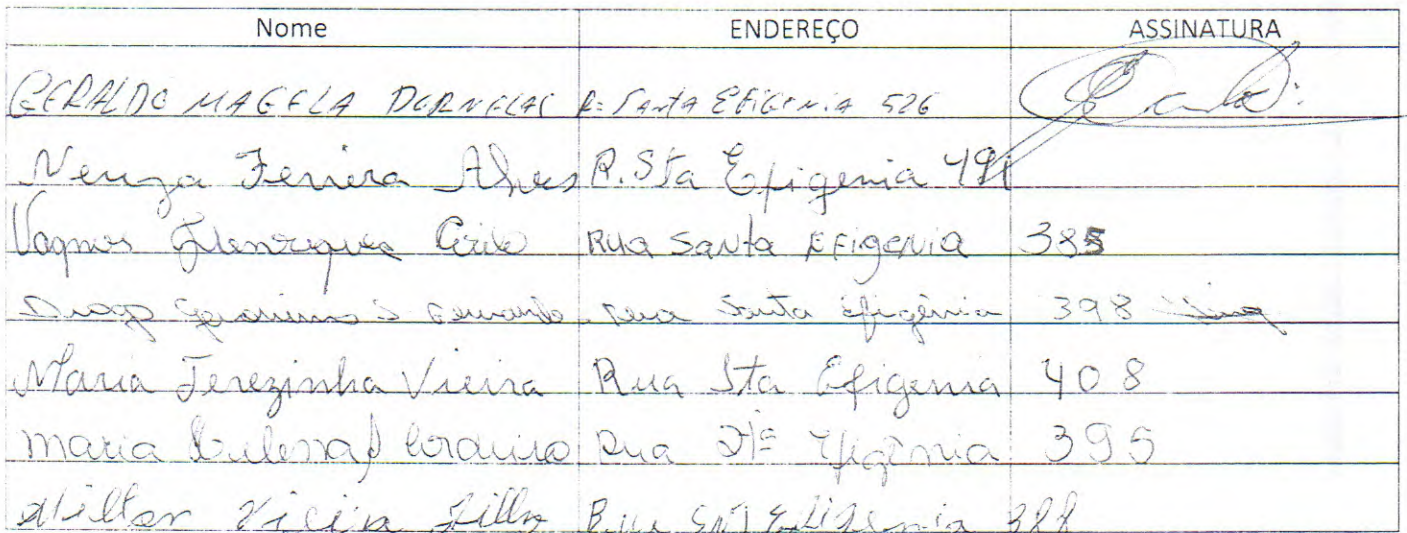 Nome ENDEREÇO ASSINATURA
GERALDO MAGELA DORNELAS R= SANTA EFIGENIA 526
Neuza Ferreira Alves R. Sta Efigenia 491
Vagner Henrique Rua Santa EFigenia 385
Diogo S Rua Santa Efigênia 398
Maria Terezinha Vieira Rua Sta Efigenia 408
maria Cordeiro Rua Stª Efigênia 395
Vieira Filho Rua Efigenia 388